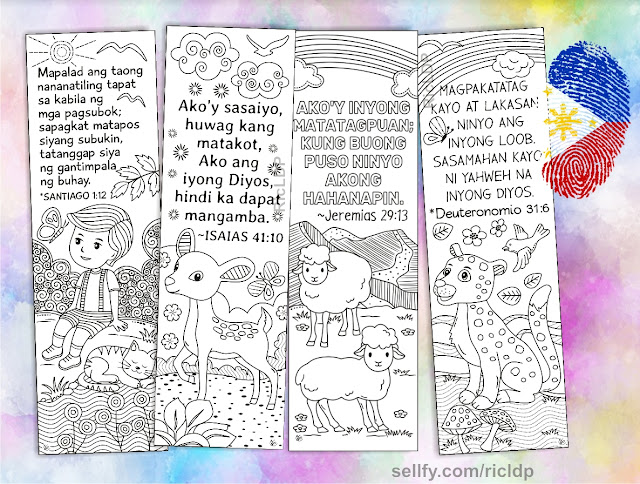 Mapalad ang taong
nananatiling tapat
sa kabila ng
mga pagsubok;
sapagkat matapos
siyang subukin,
tatanggap siya
ng gantimpala
ng buhay.
*SANTIAGO 1:12
Ako'y sasaiyo,
huwag kang
matakot,
Ako ang
iyong Diyos,
hindi ka dapat
mangamba.
~ISAIAS 41:10
AKO'Y INYONG
MATATAGPUAN;
KUNG BUONG
PUSO NINYO
AKONG
HAHANAPIN.
~Jeremias 29:13
MAGPAKATATAG
KAYO AT LAKASAN
NINYO ANG
INYONG LOOB.
SASAMAHAN KAYO
NI YAHWEH NA
INYONG DIYOS.
*Deuteronomio 31:6
RICLDP
sellfy.com/ricldp